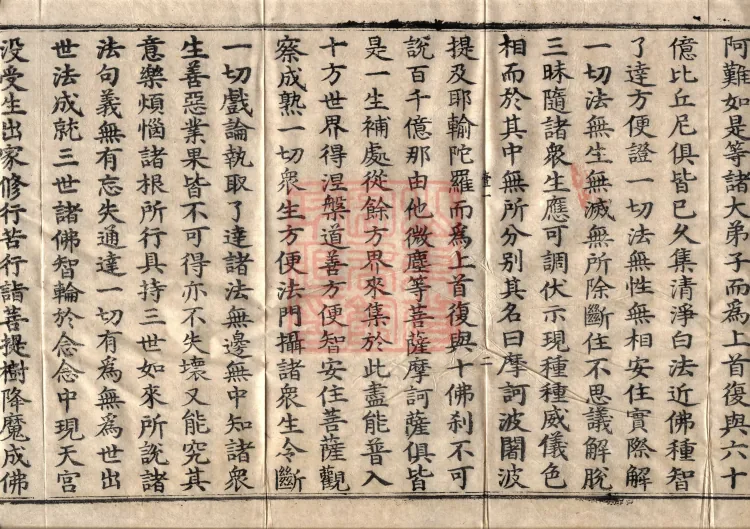 阿難如是等諸大弟子而爲上首復與六十
億比丘尼俱皆已久集清淨白法近佛種智
了達方便證一切法無性無相安住實際解
一切法無生無滅無所除斷住不思議解脫
三昧隨諸衆生應可調伏示現種種威儀色
相而於其中無所分别其名曰摩訶波闍波
提及耶輸陀羅而爲上首復與十佛刹不可
說百千億那由他微塵等菩薩摩訶薩俱皆
是一生補處從餘方界來集於此盡能普入
十方世界得涅槃道善方便智安住菩薩觀
察成熟一切衆生方便法門攝諸衆生令斷
一切戲論執取了達諸法無邊無中知諸衆
生善惡業果皆不可得亦不失壞又能究其
意樂煩惱諸根所行具持三世如來所說諸
法句義無有忘失通達一切有爲無爲世出
世法成就三世諸佛智輪於念念中現天宮
没受生出家修行苦行詣菩提樹降魔成佛